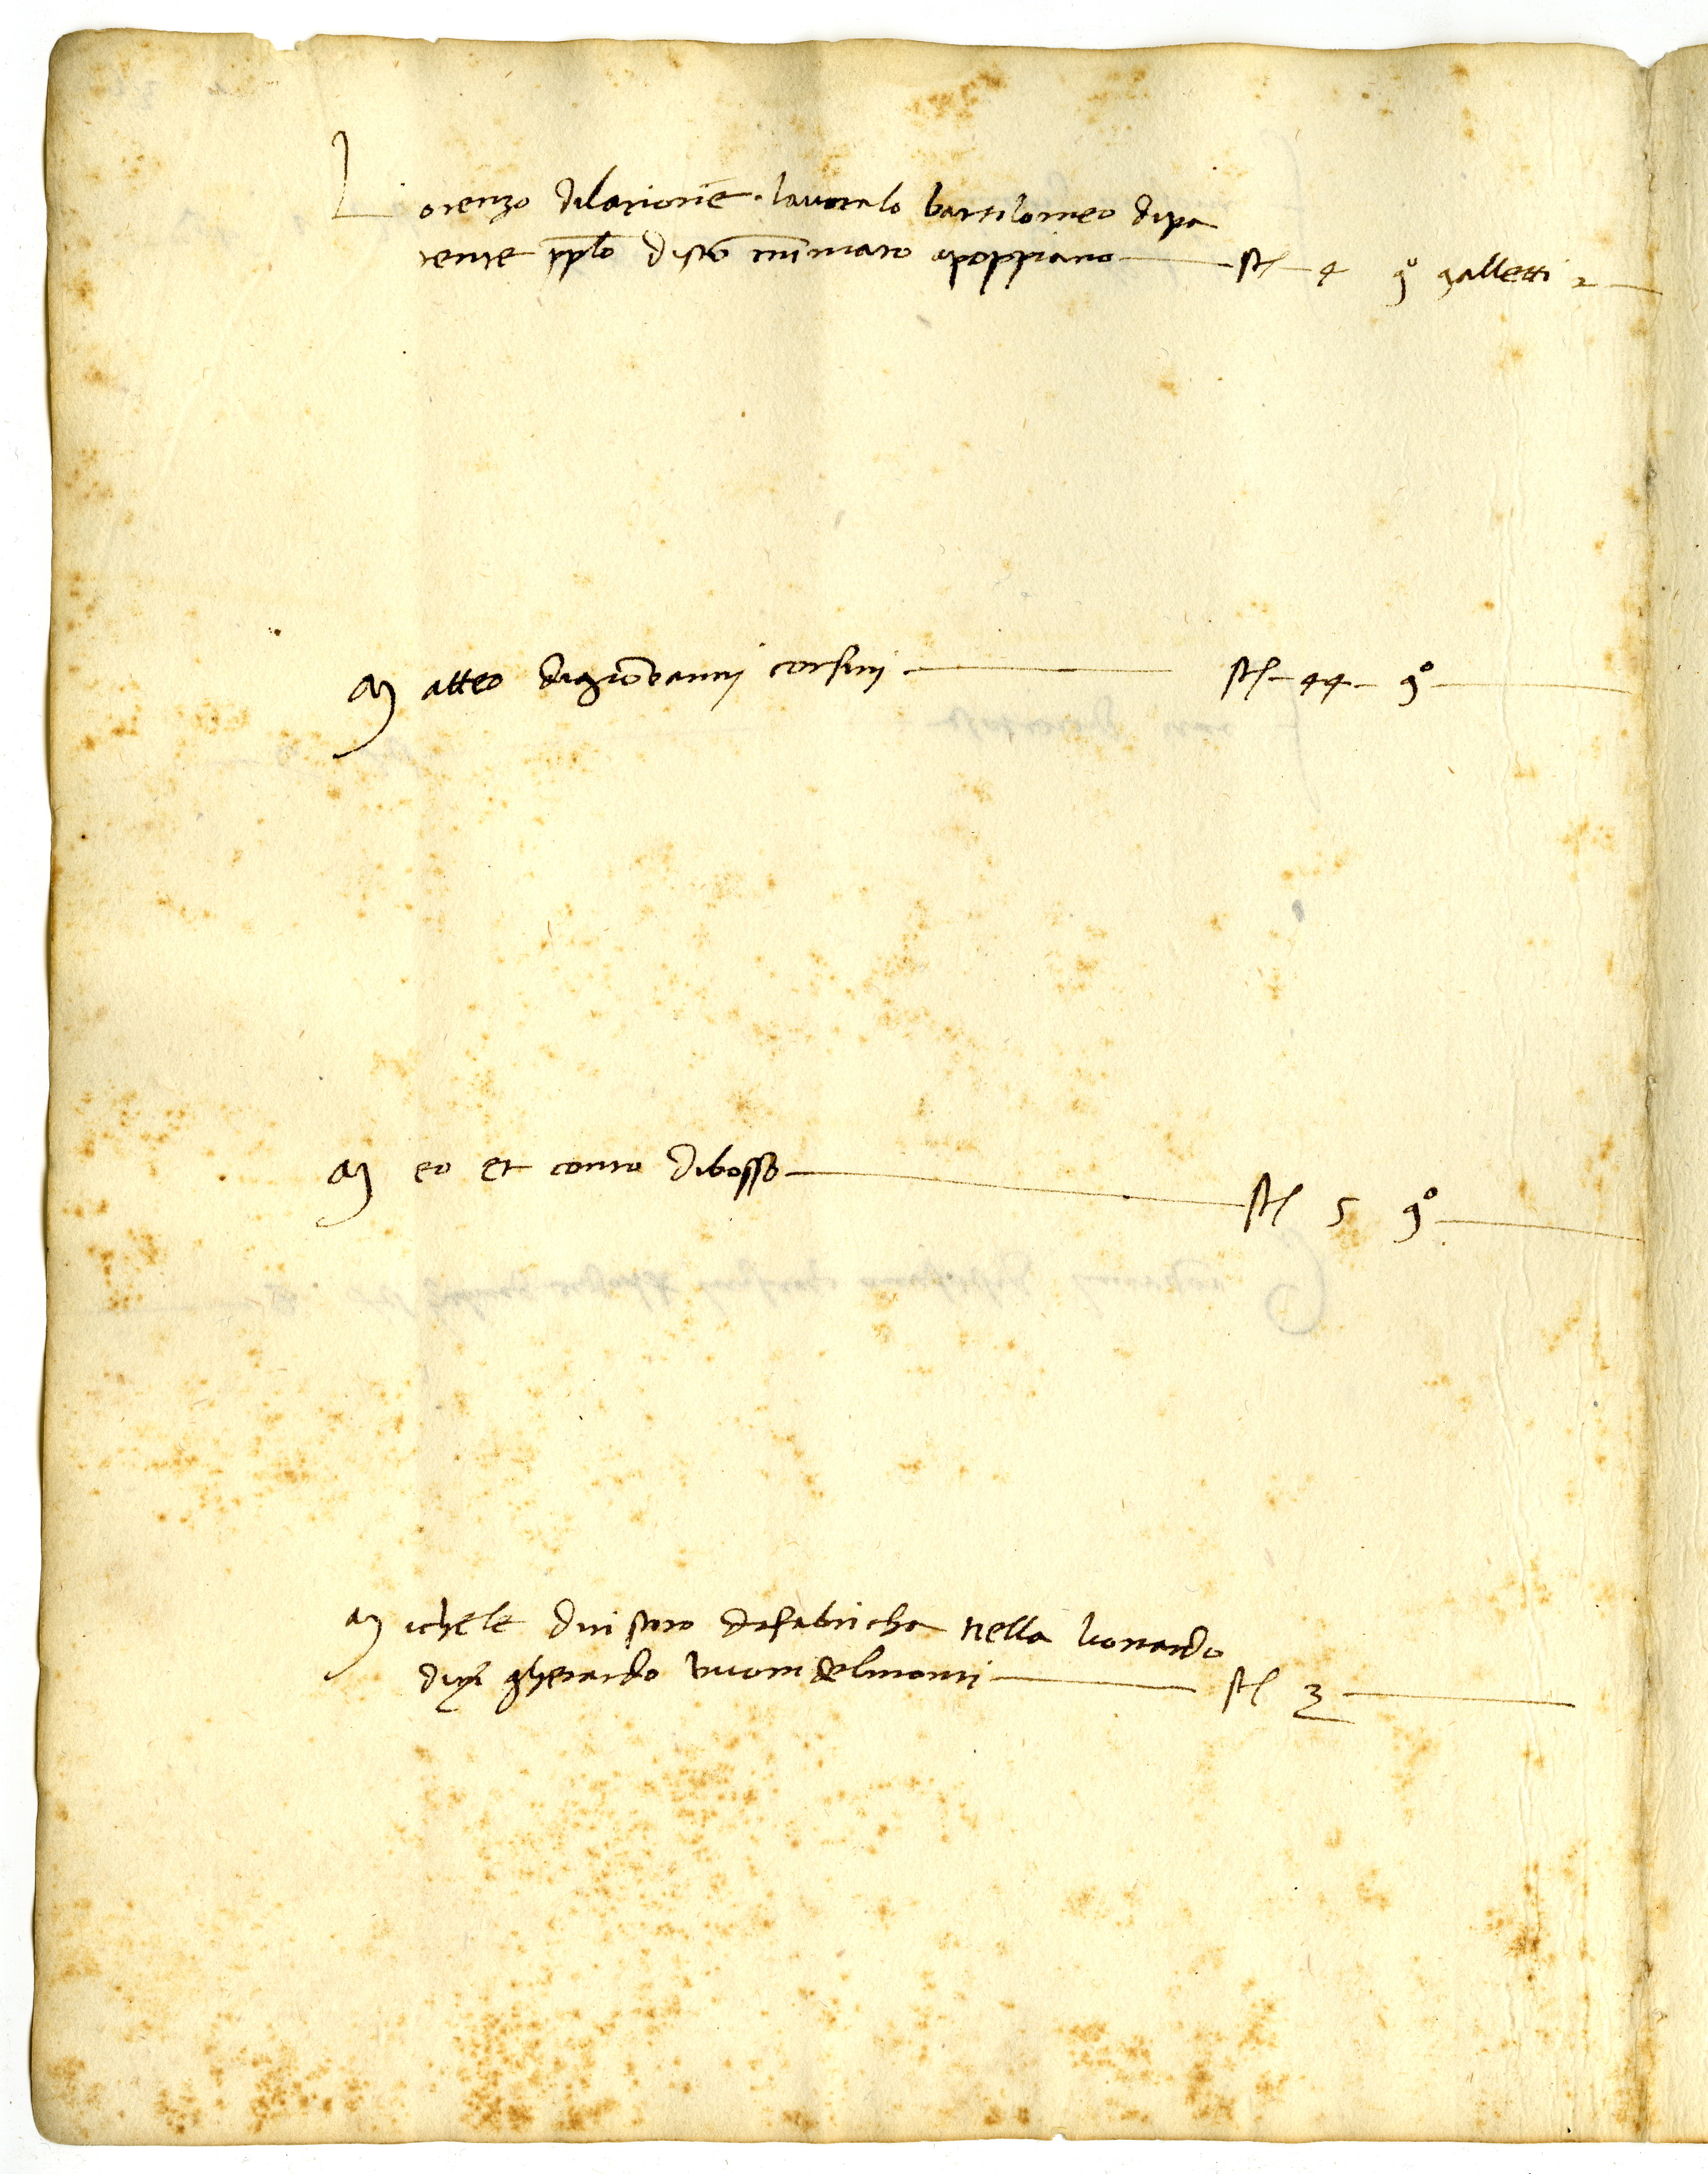 Lorenzo dilarione lavoralo bartolomeo dipa
rente pplo disto miniato apoppiano st 4 gº galletti 2
Matteo digiovannj corsinj st 44 gº
Meo et conto dibosso st 5 gº
Michele diristoro dafabricha nella lionardo
gherardo buondelmonti st 3